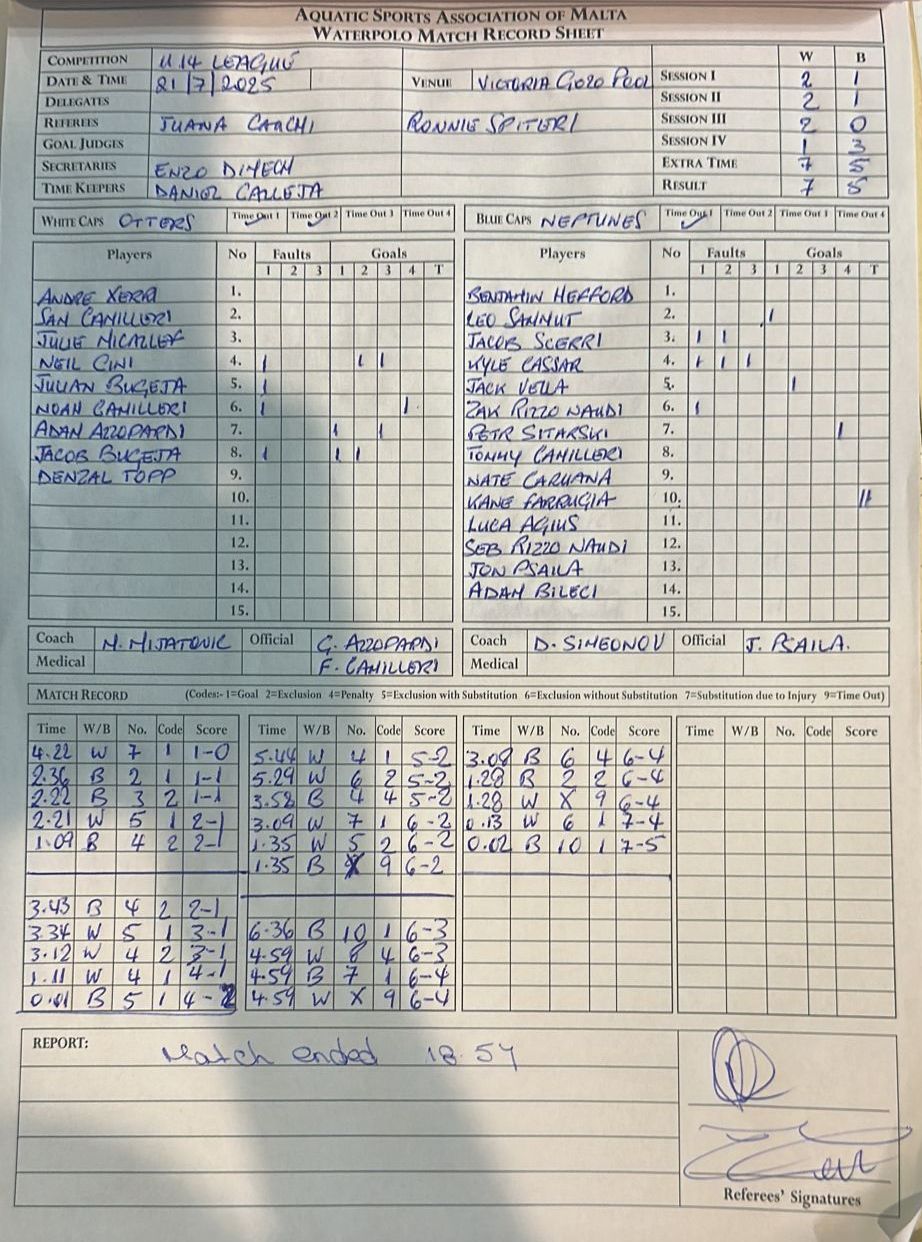 AQUATIC SPORTS ASSOCIATION OF MALTA
WATERPOLO MATCH RECORD SHEET
COMPETITION U14 LEAGUE W B
DATE & TIME 21/7/2025 VENUE VICTORIA GOZO POOL SESSION I 2 1
DELEGATES SESSION II 2 1
REFEREES JUANA CAACHI RONNIE SPITERI SESSION III 2 0
GOAL JUDGES SESSION IV 1 3
SECRETARIES ENZO DIMECH EXTRA TIME 7 5
TIME KEEPERS DANIEL CALLEJA RESULT 7 5
WHITE CAPS OTTERS Time Out 1 Time Out 2 Time Out 3 Time Out 4
BLUE CAPS NEPTUNES Time Out 1 Time Out 2 Time Out 3 Time Out 4
Players No Faults Goals
1 2 3 1 2 3 4 T
ANDRE XERRI 1.
SAN CAMILLERI 2.
JULIE MICALLEF 3.
NEIL CINI 4. | | |
JULIAN BUGEJA 5. |
NOAH CAMILLERI 6. | |
ADAN AZZOPARDI 7. | |
JACOB BUGEJA 8. | | |
DENZAL TOPP 9.
10.
11.
12.
13.
14.
15.
Players No Faults Goals
1 2 3 1 2 3 4 T
BENJAMIN HEFFORD 1.
LEO SAMMUT 2. |
JACOB SCERRI 3. | |
KYLE CASSAR 4. | | |
JACK VELLA 5. |
ZAK RIZZO NAUDI 6. |
PETR SITARSKI 7. |
TOMMY CAMILLERI 8.
NATE CARUANA 9.
KANE FARRUGIA 10. ||
LUCA AGIUS 11.
SEB RIZZO NAUDI 12.
JON PSAILA 13.
ADAM BILECI 14.
15.
Coach N. MIJATOVIC Official G. AZZOPARDI
Medical F. CAMILLERI
Coach D. SIMEONOV Official J. PSAILA.
Medical
MATCH RECORD (Codes:- 1=Goal 2=Exclusion 4=Penalty 5=Exclusion with Substitution 6=Exclusion without Substitution 7=Substitution due to Injury 9=Time Out)
Time W/B No. Code Score
4.22 W 7 1 1-0
2.36 B 2 1 1-1
2.22 B 3 2 1-1
2.21 W 5 1 2-1
1.09 B 4 2 2-1
3.43 B 4 2 2-1
3.34 W 5 1 3-1
3.12 W 4 2 3-1
1.11 W 4 1 4-1
0.01 B 5 1 4-2
Time W/B No. Code Score
5.44 W 4 1 5-2
5.29 W 6 2 5-2
3.58 B 4 4 5-2
3.09 W 7 1 6-2
1.35 W 5 2 6-2
1.35 B X 9 6-2
6.36 B 10 1 6-3
4.59 W 8 4 6-3
4.59 B 7 1 6-4
4.59 W X 9 6-4
Time W/B No. Code Score
3.08 B 6 4 6-4
1.28 B 2 2 6-4
1.28 W X 9 6-4
0.13 W 6 1 7-4
0.02 B 10 1 7-5
Time W/B No. Code Score
REPORT: Match ended 18.54
Referees' Signatures